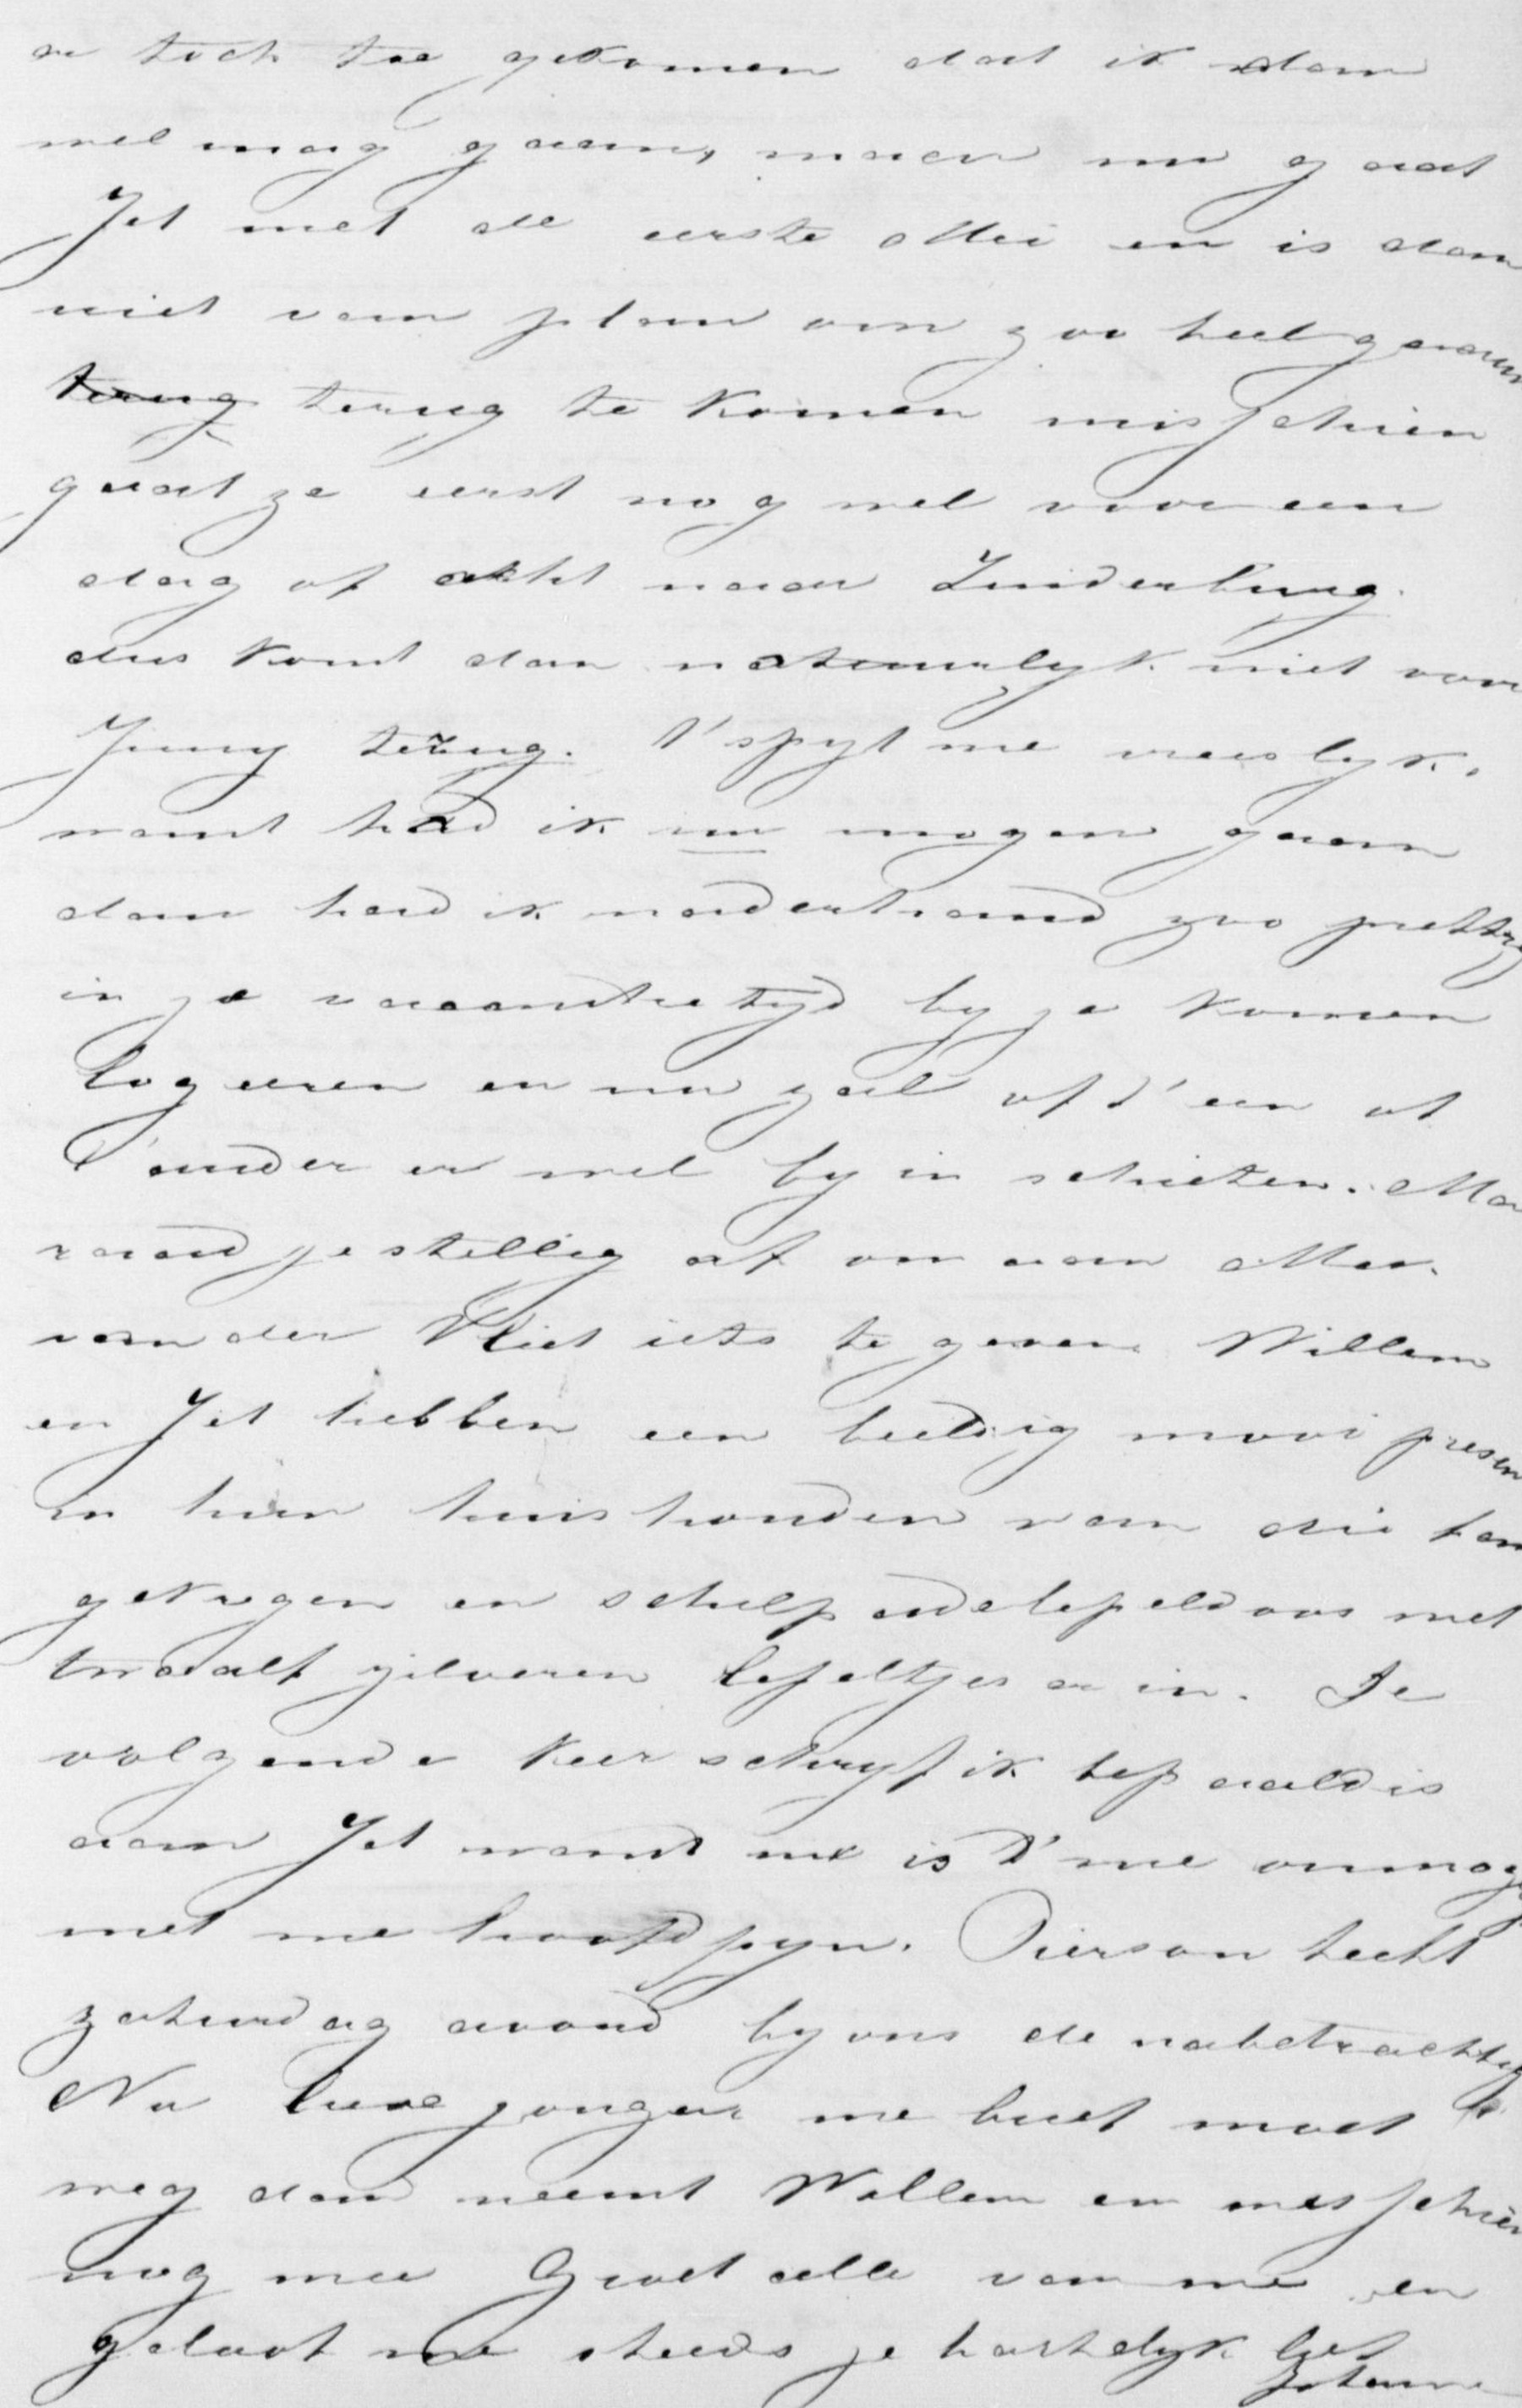 er toch toe gekomen dat ik dan
wel mag gaan, maar nu gaat
Jet met de eerste Mei en is dan
niet van plan om zoo heel gaauw
terug terug te komen misschien
gaat ze eerst nog wel voor een
dag of acht naar Zuiderburg.
dus komt dan natuurlyk niet voor
Juny terug. t'spyt me vreeslyk,
want had ik nu mogen gaan
dan had ik naderhand zoo prettig
in je vacantietyd by je komen
logeeren en nu zal of d'een of
d'ander er wel by in schieten. Ma
raad je stellig af om aan Mev.
van der Vliet iets te geven Willem
en Jet hebben een beeldig mooi presen
in hun huishouden van die fam
gekregen en schulp lepeldoos met
twaalf zilveren lepeltjes er in. De
volgende keer schryf ik bepaald is
aan Jet want nu is t'me onmog
met me hoofdpyn. Pierson hecht
zaturdag avond by ons de nabetrachting
Nu lieve jongen me brief moet
weg dan neemt Willem en misschien
nog mee Groet alle van me en
geloof me steeds je hartelyk lief
Johanna